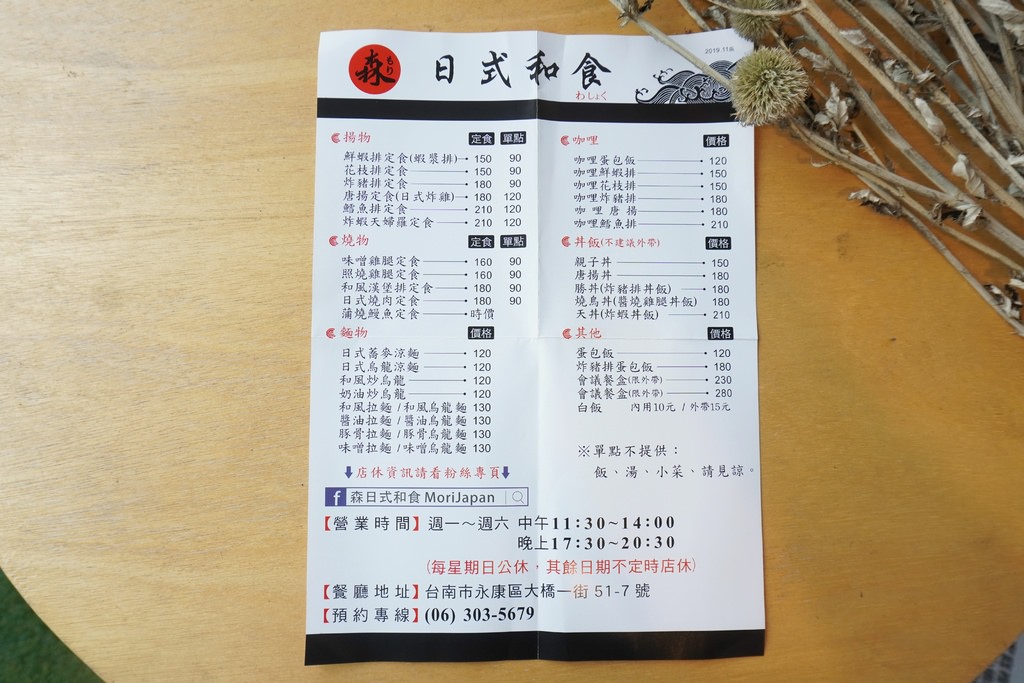 森 もり
日式和食
わしょく
2019.11版
揚物 定食 單點
鮮蝦排定食(蝦漿排) 150 90
花枝排定食 150 90
炸豬排定食 180 90
唐揚定食(日式炸雞) 180 120
鱈魚排定食 210 120
炸蝦天婦羅定食 210 120
燒物 定食 單點
味噌雞腿定食 160 90
照燒雞腿定食 160 90
和風漢堡排定食 180 90
日式燒肉定食 180 90
蒲燒鰻魚定食 時價
麵物 價格
日式蕎麥涼麵 120
日式烏龍涼麵 120
和風炒烏龍 120
奶油炒烏龍 120
和風拉麵 / 和風烏龍麵 130
醬油拉麵 / 醬油烏龍麵 130
豚骨拉麵 / 豚骨烏龍麵 130
味噌拉麵 / 味噌烏龍麵 130
咖哩 價格
咖哩蛋包飯 120
咖哩鮮蝦排 150
咖哩花枝排 150
咖哩炸豬排 180
咖哩唐揚 180
咖哩鱈魚排 210
丼飯(不建議外帶) 價格
親子丼 150
唐揚丼 180
勝丼(炸豬排丼飯) 180
燒鳥丼(醬燒雞腿丼飯) 180
天丼(炸蝦丼飯) 210
其他 價格
蛋包飯 120
炸豬排蛋包飯 180
會議餐盒(限外帶) 230
會議餐盒(限外帶) 280
白飯 內用10元 / 外帶15元
※單點不提供：
飯、湯、小菜、請見諒。
⬇店休資訊請看粉絲專頁⬇
f 森日式和食 MoriJapan
【營業時間】週一～週六 中午11:30~14:00
晚上17:30~20:30
(每星期日公休，其餘日期不定時店休)
【餐廳地址】台南市永康區大橋一街 51-7 號
【預約專線】(06) 303-5679